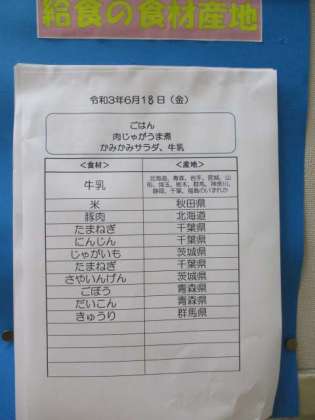 給食の食材産地
令和3年6月18日（金）
ごはん
肉じゃがうま煮
かみかみサラダ、牛乳
＜食材＞ ＜産地＞
牛乳 北海道、青森、岩手、宮城、山
形、埼玉、栃木、群馬、神奈川、
静岡、千葉、福島のいずれか
米 秋田県
豚肉 北海道
たまねぎ 千葉県
にんじん 千葉県
じゃがいも 茨城県
たまねぎ 千葉県
さやいんげん 茨城県
ごぼう 青森県
だいこん 青森県
きゅうり 群馬県